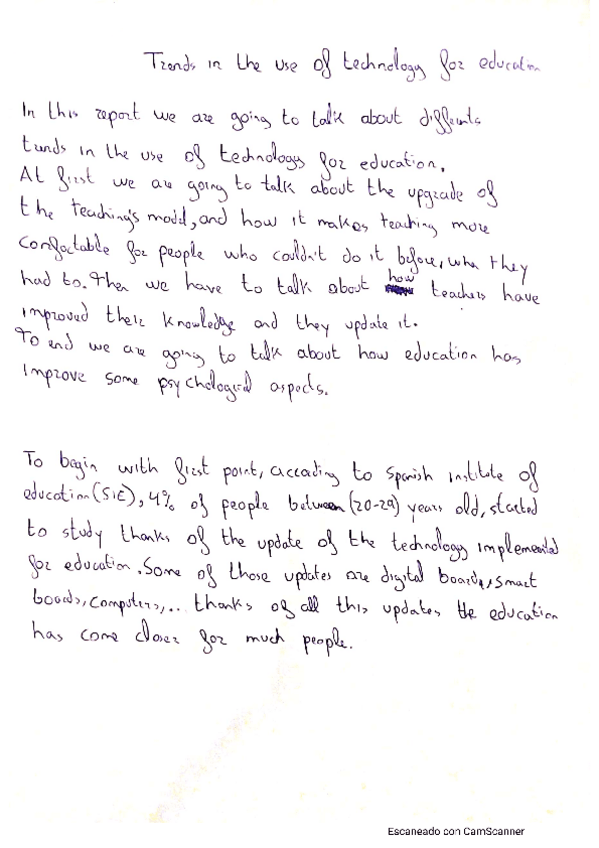 Trends in the use of technology for education
In this report we are going to talk about differents
trends in the use of technology for education.
At first we are going to talk about the upgrade of
the teaching's model, and how it makes teaching more
comfortable for people who couldn't do it before, when they
had to. Then we have to talk about how teachers have
improved their knowledge and they update it.
To end we are going to talk about how education has
improve some psychological aspects.
To begin with first point, according to Spanish institute of
education (SIE), 4% of people between (20-29) years old, started
to study thanks of the update of the technology implemented
for education. Some of those updates are digital boards, smart
boards, computers,... thanks of all this updates the education
has come closer for much people.
Escaneado con CamScanner